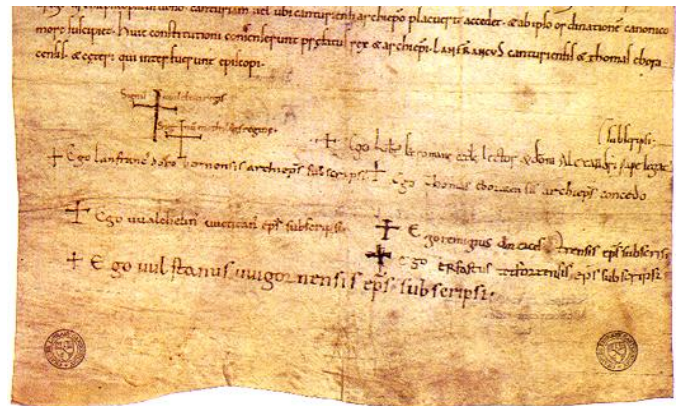 cantuariam uel ubi cantuariensi archiepo placuerit accedet · & ab ipso ordinatione canonico
more suscipiet · Huic constitutioni consenserunt prefatus rex & archiepi · LANFRANCUS cantuariensis & thomas ebora
censis · & ceteri qui interfuerunt episcopi ·
Signum willelmi regis
Signum mathildis regine
+ Ego hubertus romane ecclę lector & domni Alexandri pape legatus
subscripsi ·
+ Ego lanfrancus dorobornensis archieps subscripsi ·
+ Ego thomas eboracensis archieps concedo
+ Ego uualchelinus uuentanus eps subscripsi ·
+ Ego remigius eps subscripsi
+ Ego uulstanus uuigornensis eps subscripsi ·
+ Ego erfastus eps subscripsi